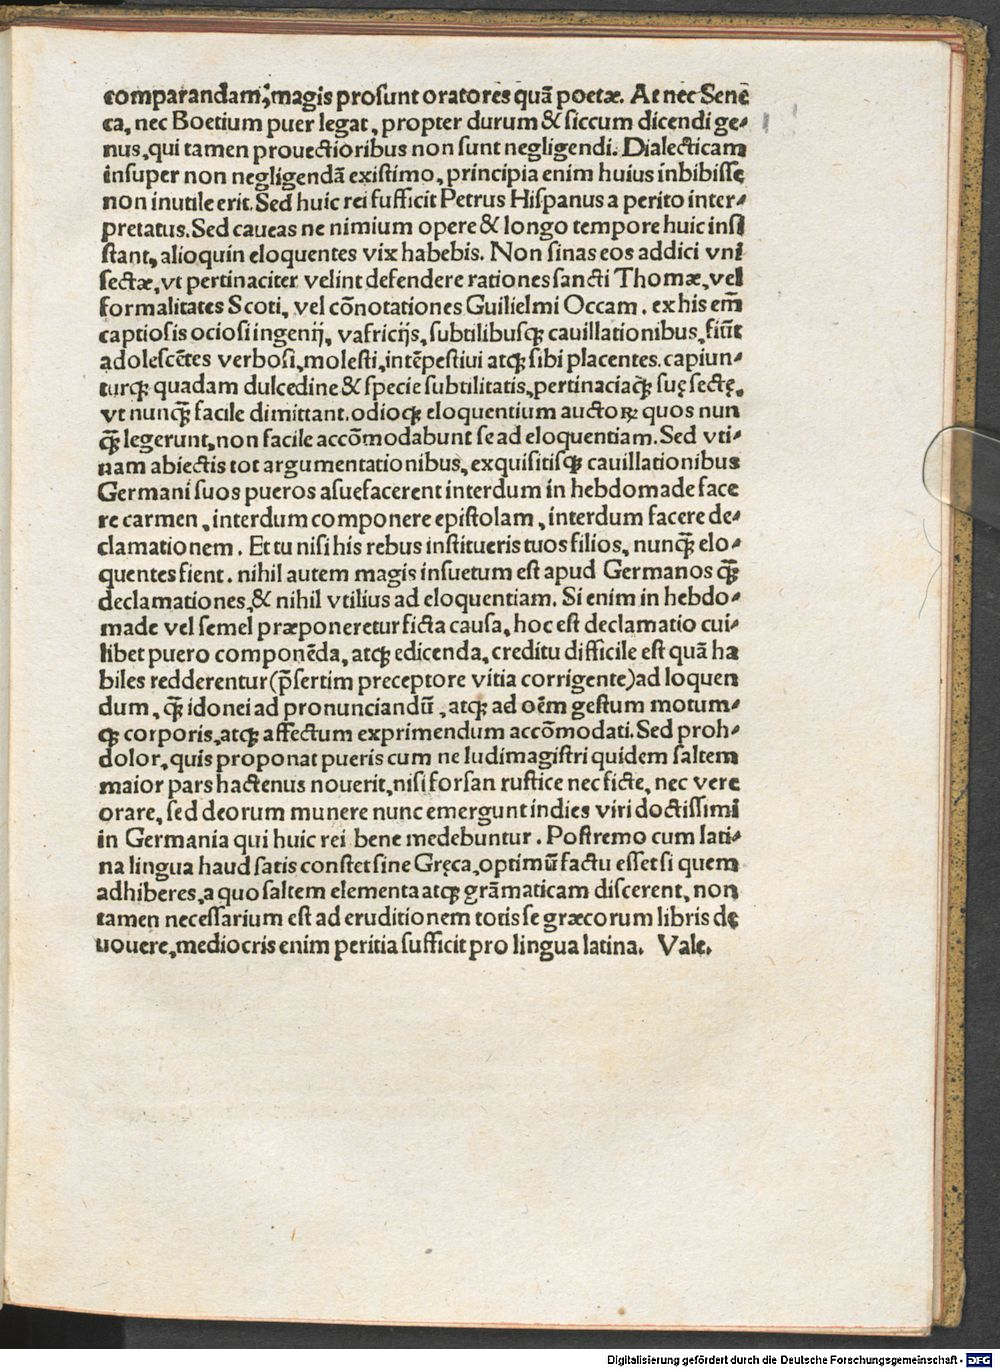 comparandam, magis prosunt oratores quã poetæ. At nec Senē
ca, nec Boetium puer legat, propter durum & siccum dicendi ge-
nus, qui tamen prouectioribus non sunt negligendi. Dialecticam
insuper non negligendã existimo, principia enim huius inbibisse
non inutile erit. Sed huic rei sufficit Petrus Hispanus a perito inter-
pretatus. Sed caueas ne nimium opere & longo tempore huic insi
stant, alioquin eloquentes vix habebis. Non sinas eos addici vni
sectæ, vt pertinaciter velint defendere rationes sancti Thomæ, vel
formalitates Scoti, vel cōnotationes Guilielmi Occam. ex his em̄
captiosis ociosi ingenij, vafricijs, subtilibusqꝫ cauillationibus, fiūt
adolescētes verbosi, molesti, intēpestiui atqꝫ sibi placentes. capiun-
turqꝫ quadam dulcedine & specie subtilitatis, pertinaciaqꝫ suę sectę,
vt nunqꝫ̄ facile dimittant. odioqꝫ eloquentium auctoꝝ quos nun
qꝫ̄ legerunt, non facile accōmodabunt se ad eloquentiam. Sed vti-
nam abiectis tot argumentationibus, exquisitisqꝫ cauillationibus
Germani suos pueros asuefacerent interdum in hebdomade face
re carmen, interdum componere epistolam, interdum facere de-
clamationem. Et tu nisi his rebus institueris tuos filios, nunqꝫ̄ elo-
quentes fient. nihil autem magis insuetum est apud Germanos qꝫ̄
declamationes, & nihil vtilius ad eloquentiam. Si enim in hebdo-
made vel semel præponeretur ficta causa, hoc est declamatio cui-
libet puero componēda, atqꝫ edicenda, creditu difficile est quã ha
biles redderentur (p̄sertim preceptore vitia corrigente) ad loquen
dum, qꝫ̄ idonei ad pronunciandū, atqꝫ ad oēm gestum motum-
qꝫ corporis, atqꝫ affectum exprimendum accōmodati. Sed proh-
dolor, quis proponat pueris cum ne ludimagistri quidem saltem
maior pars hactenus nouerit, nisi forsan rustice nec ficte, nec vere
orare, sed deorum munere nunc emergunt indies viri doctissimi
in Germania qui huic rei bene medebuntur. Postremo cum lati-
na lingua haud satis constet sine Gręca, optimū factu esset si quem
adhiberes, a quo saltem elementa atqꝫ grãmaticam discerent, non
tamen necessarium est ad eruditionem totis se græcorum libris de
uouere, mediocris enim peritia sufficit pro lingua latina. Vale.
Digitalisierung gefördert durch die Deutsche Forschungsgemeinschaft - DFG